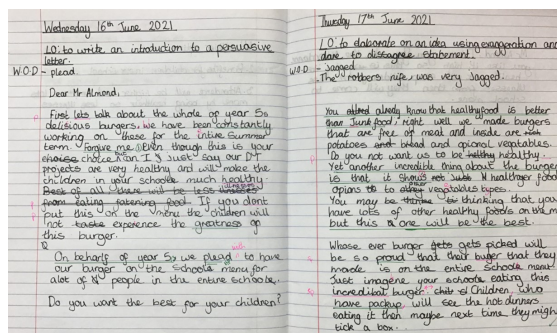 Wednesday 16th June 2021
LO: to write an introduction to a persuasive
letter.
W.O.D - plead.
Dear Mr Almond,
First lets talk about the whole of year 5s
delisious burgers. We have been constantly
working on these for the intire summer
term. Forgive me, even though this is your
choise choice, can I Just say our DT
projects are very healthy and will make the
children in your schoole much healthy.
Best of all there will be less
from eating fatening food. If you dont
put this on the menu the children will
not taste experience the greatness of
this burger.
On beharlf of year 5, we plead to have
our burger on the schoole menu for
alot of people in the entire schoole.
Do you want the best for your children?
Thursday 17th June 2021
LO: to elaborate on an idea using exaggeration and
dare to dissagree statement.
W.O.D - Jagged
The robbers nife was very Jagged.
You already know that healthy food is better
than Junk food, right well we made burgers
that are free of meat and inside are
potatoes and bread and opional vegatables.
Do you not want us to be healthy healthy.
Yet another incredible thing about the burger
is that it shows healthier food
opions to other vegatables types.
You may be thinking that you
have lots of other healthy foods on the menu
but this one will be the best.
Whose ever burger gets picked will
be so proud that their burger that they
made is on the entire schoole menu!
Just imagine your schoole eating this
incredibal burger. Children who
have packup will see the hot dinners
eating it then maybe next time they might
tick a box.